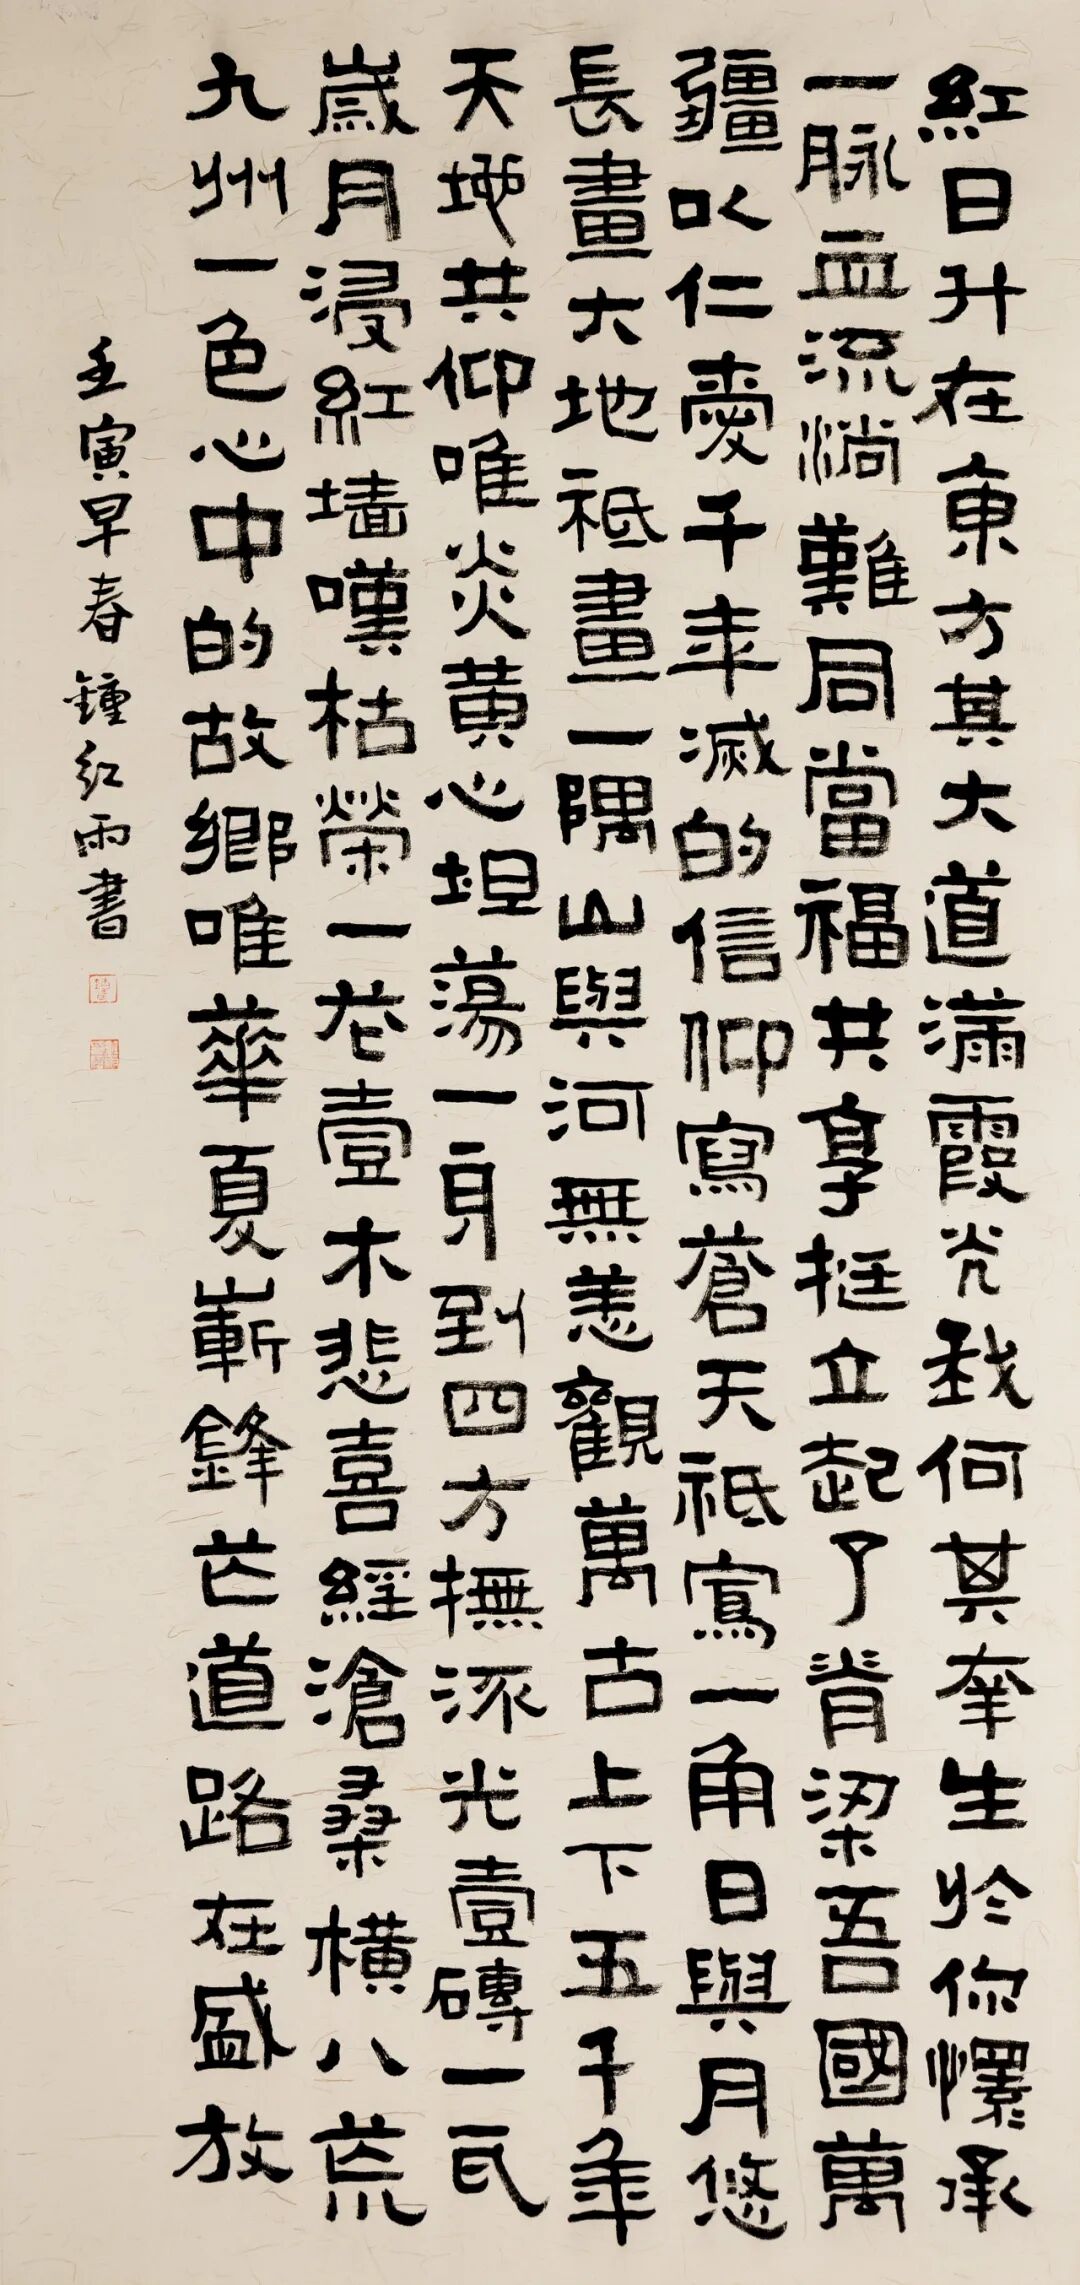 紅日升在東方其大道滿霞光我何其幸生於你懷承
一脉血流淌難同當福共享挺立起了脊梁吾國萬
疆以仁愛千年滅的信仰寫蒼天祇寫一角日與月悠
長畫大地祇畫一隅山與河無恙觀萬古上下五千年
天地共仰唯炎黃心坦蕩一身到四方撫流光壹磚一瓦
歲月浸紅墙嘆枯榮一花壹木悲喜經滄桑橫八荒
九州一色心中的故鄉唯華夏嶄鋒芒道路在盛放
壬寅早春鍾红雨書